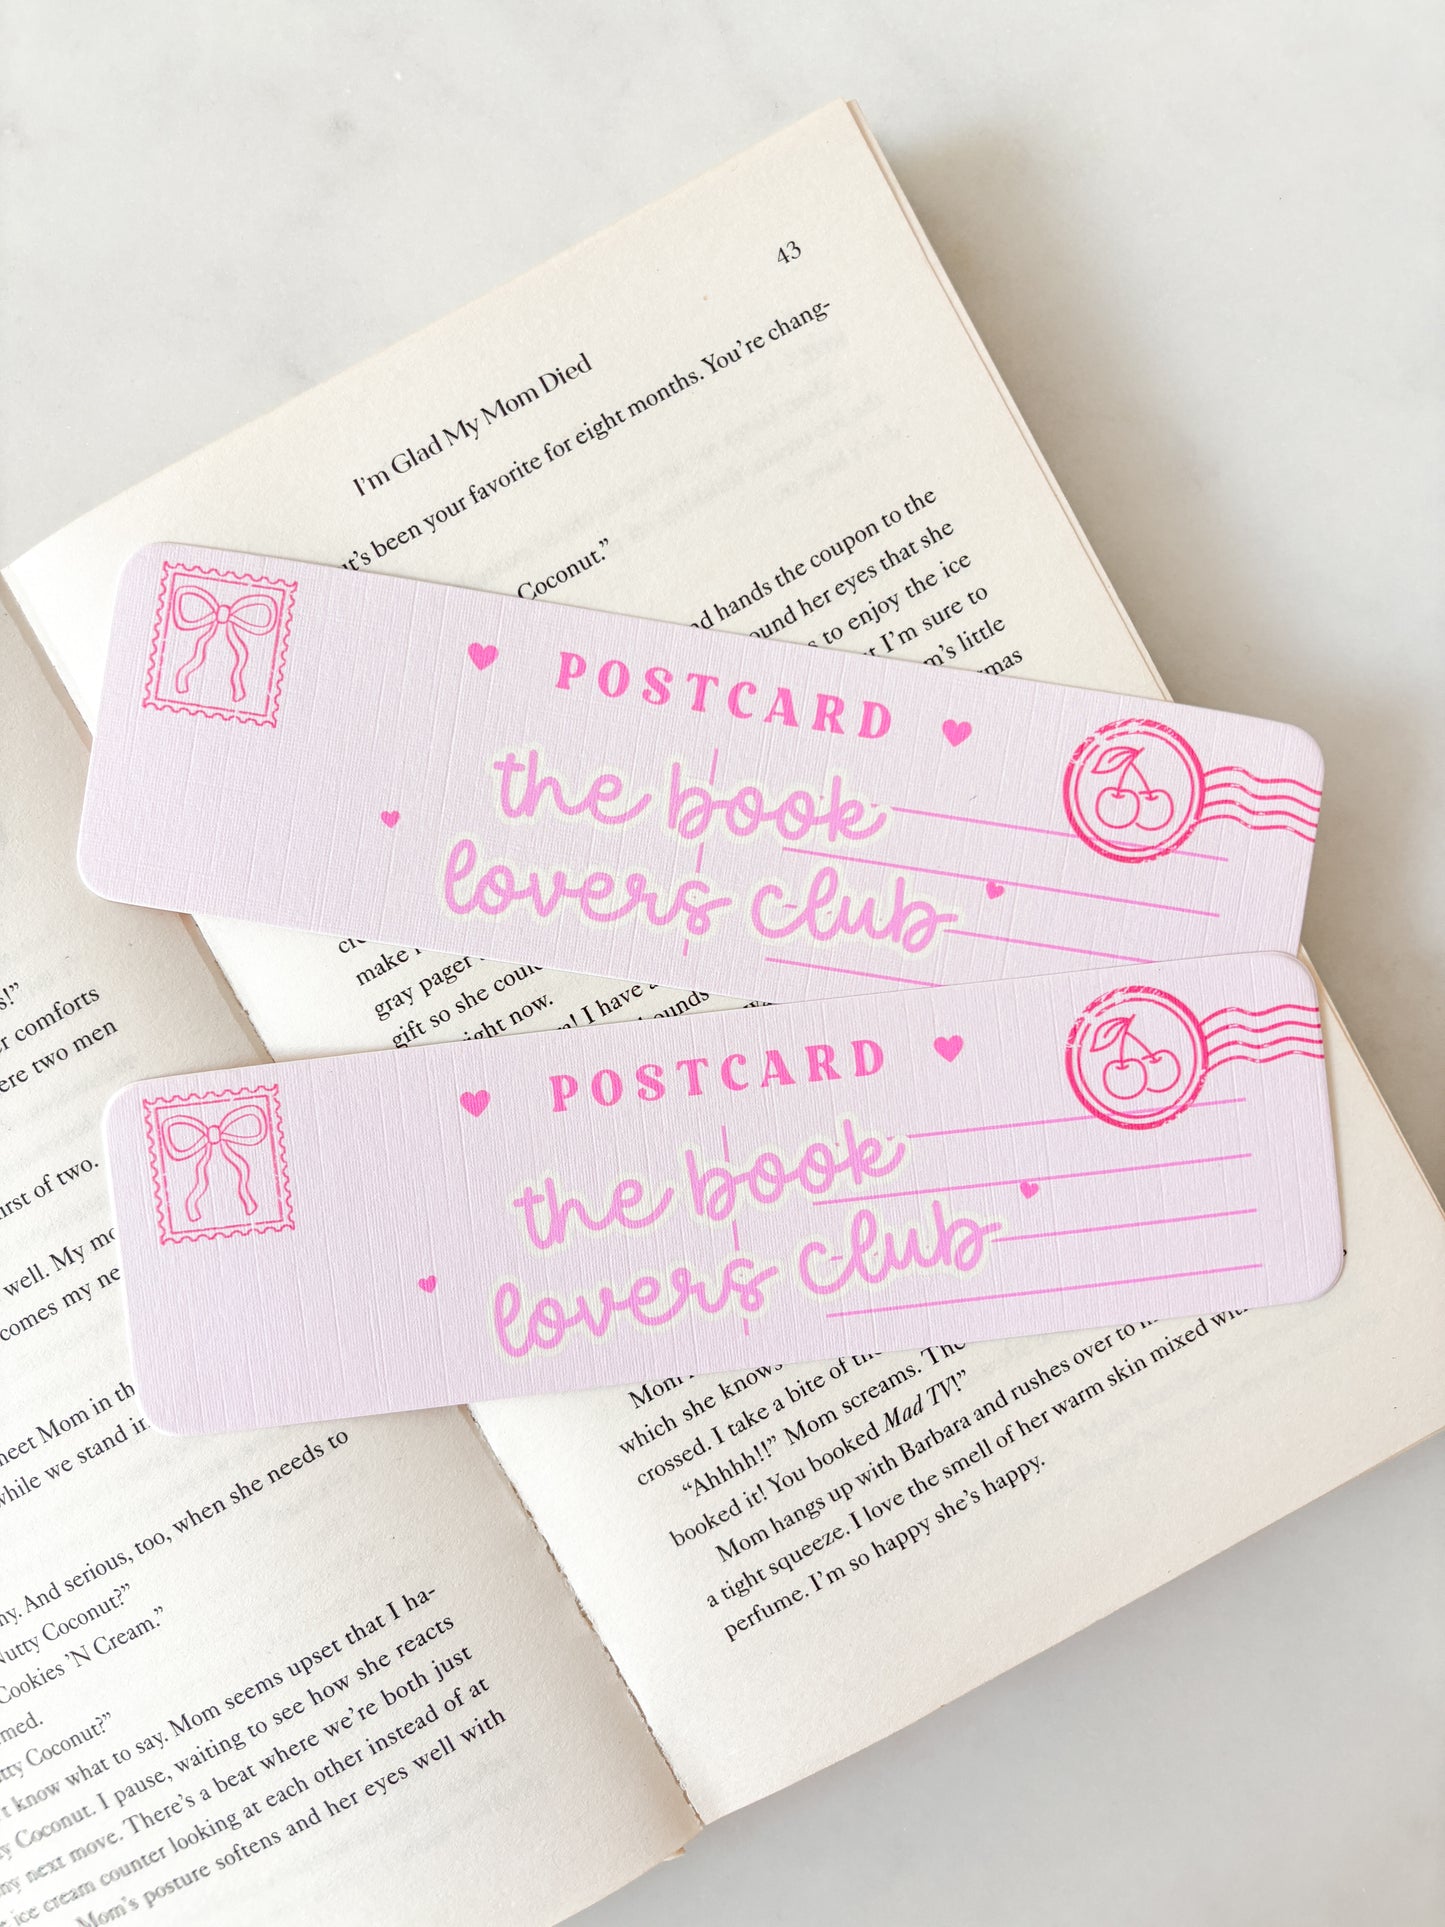 43
I'm Glad My Mom Died
it's been your favorite for eight months. You're chang-
Coconut.”
hands the coupon to the
her eyes that she
to enjoy the ice
I'm sure to
little
POSTCARD
the book
lovers club
make
gray pager
gift so she could
right now.
I have a
POSTCARD
the book
lovers club
Mom
which she knows
crossed. I take a bite of the
“Ahhhh!!” Mom screams. The
booked it! You booked Mad TV!”
Mom hangs up with Barbara and rushes over to
a tight squeeze. I love the smell of her warm skin mixed with
perfume. I'm so happy she's happy.
comforts
two men
first of two.
well. My
comes my
Mom in
while we stand in
And serious, too, when she needs to
Nutty Coconut?”
Cookies 'N Cream.”
Coconut?”
know what to say. Mom seems upset that I ha-
Coconut. I pause, waiting to see how she reacts
my next move. There's a beat where we're both just
ice cream counter looking at each other instead of at
Mom's posture softens and her eyes well with